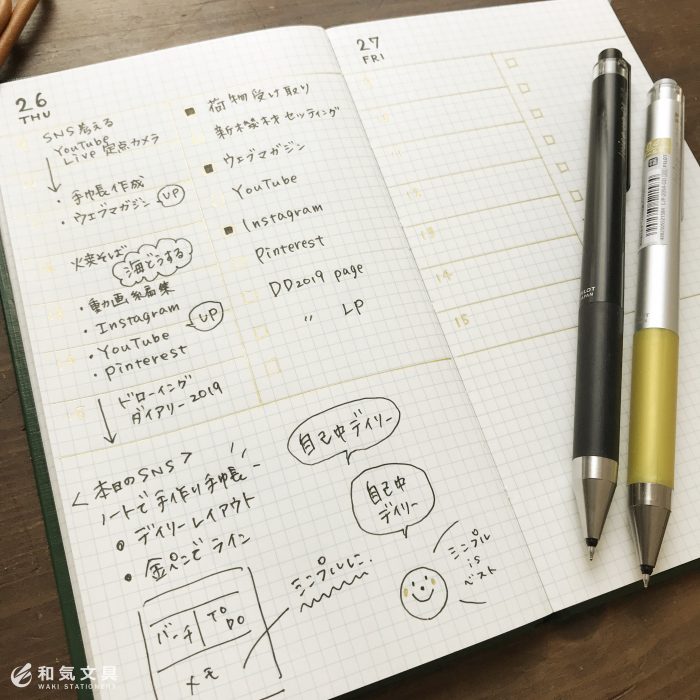 26
THU
SNS考える
YouTube
Live 定点カメラ
・手帳作成
・ウェブマガジン UP
火焚そば
海どうする
・動画編集
・Instagram
・YouTube UP
・Pinterest
ドローイング
ダイアリー2019
荷物受け取り
新機材セッティング
ウェブマガジン
YouTube
Instagram
Pinterest
DD2019 page
〃 LP
<本日のSNS>
ノートで手作り手帳
・デイリーレイアウト
・金ペンでライン
バーチ
TO
DO
メモ
シンプルに.
自己中デイリー
自己中
デイリー
シンプル
is
ベスト
27
FRI
13
14
15
和気文具
WAKI STATIONERY